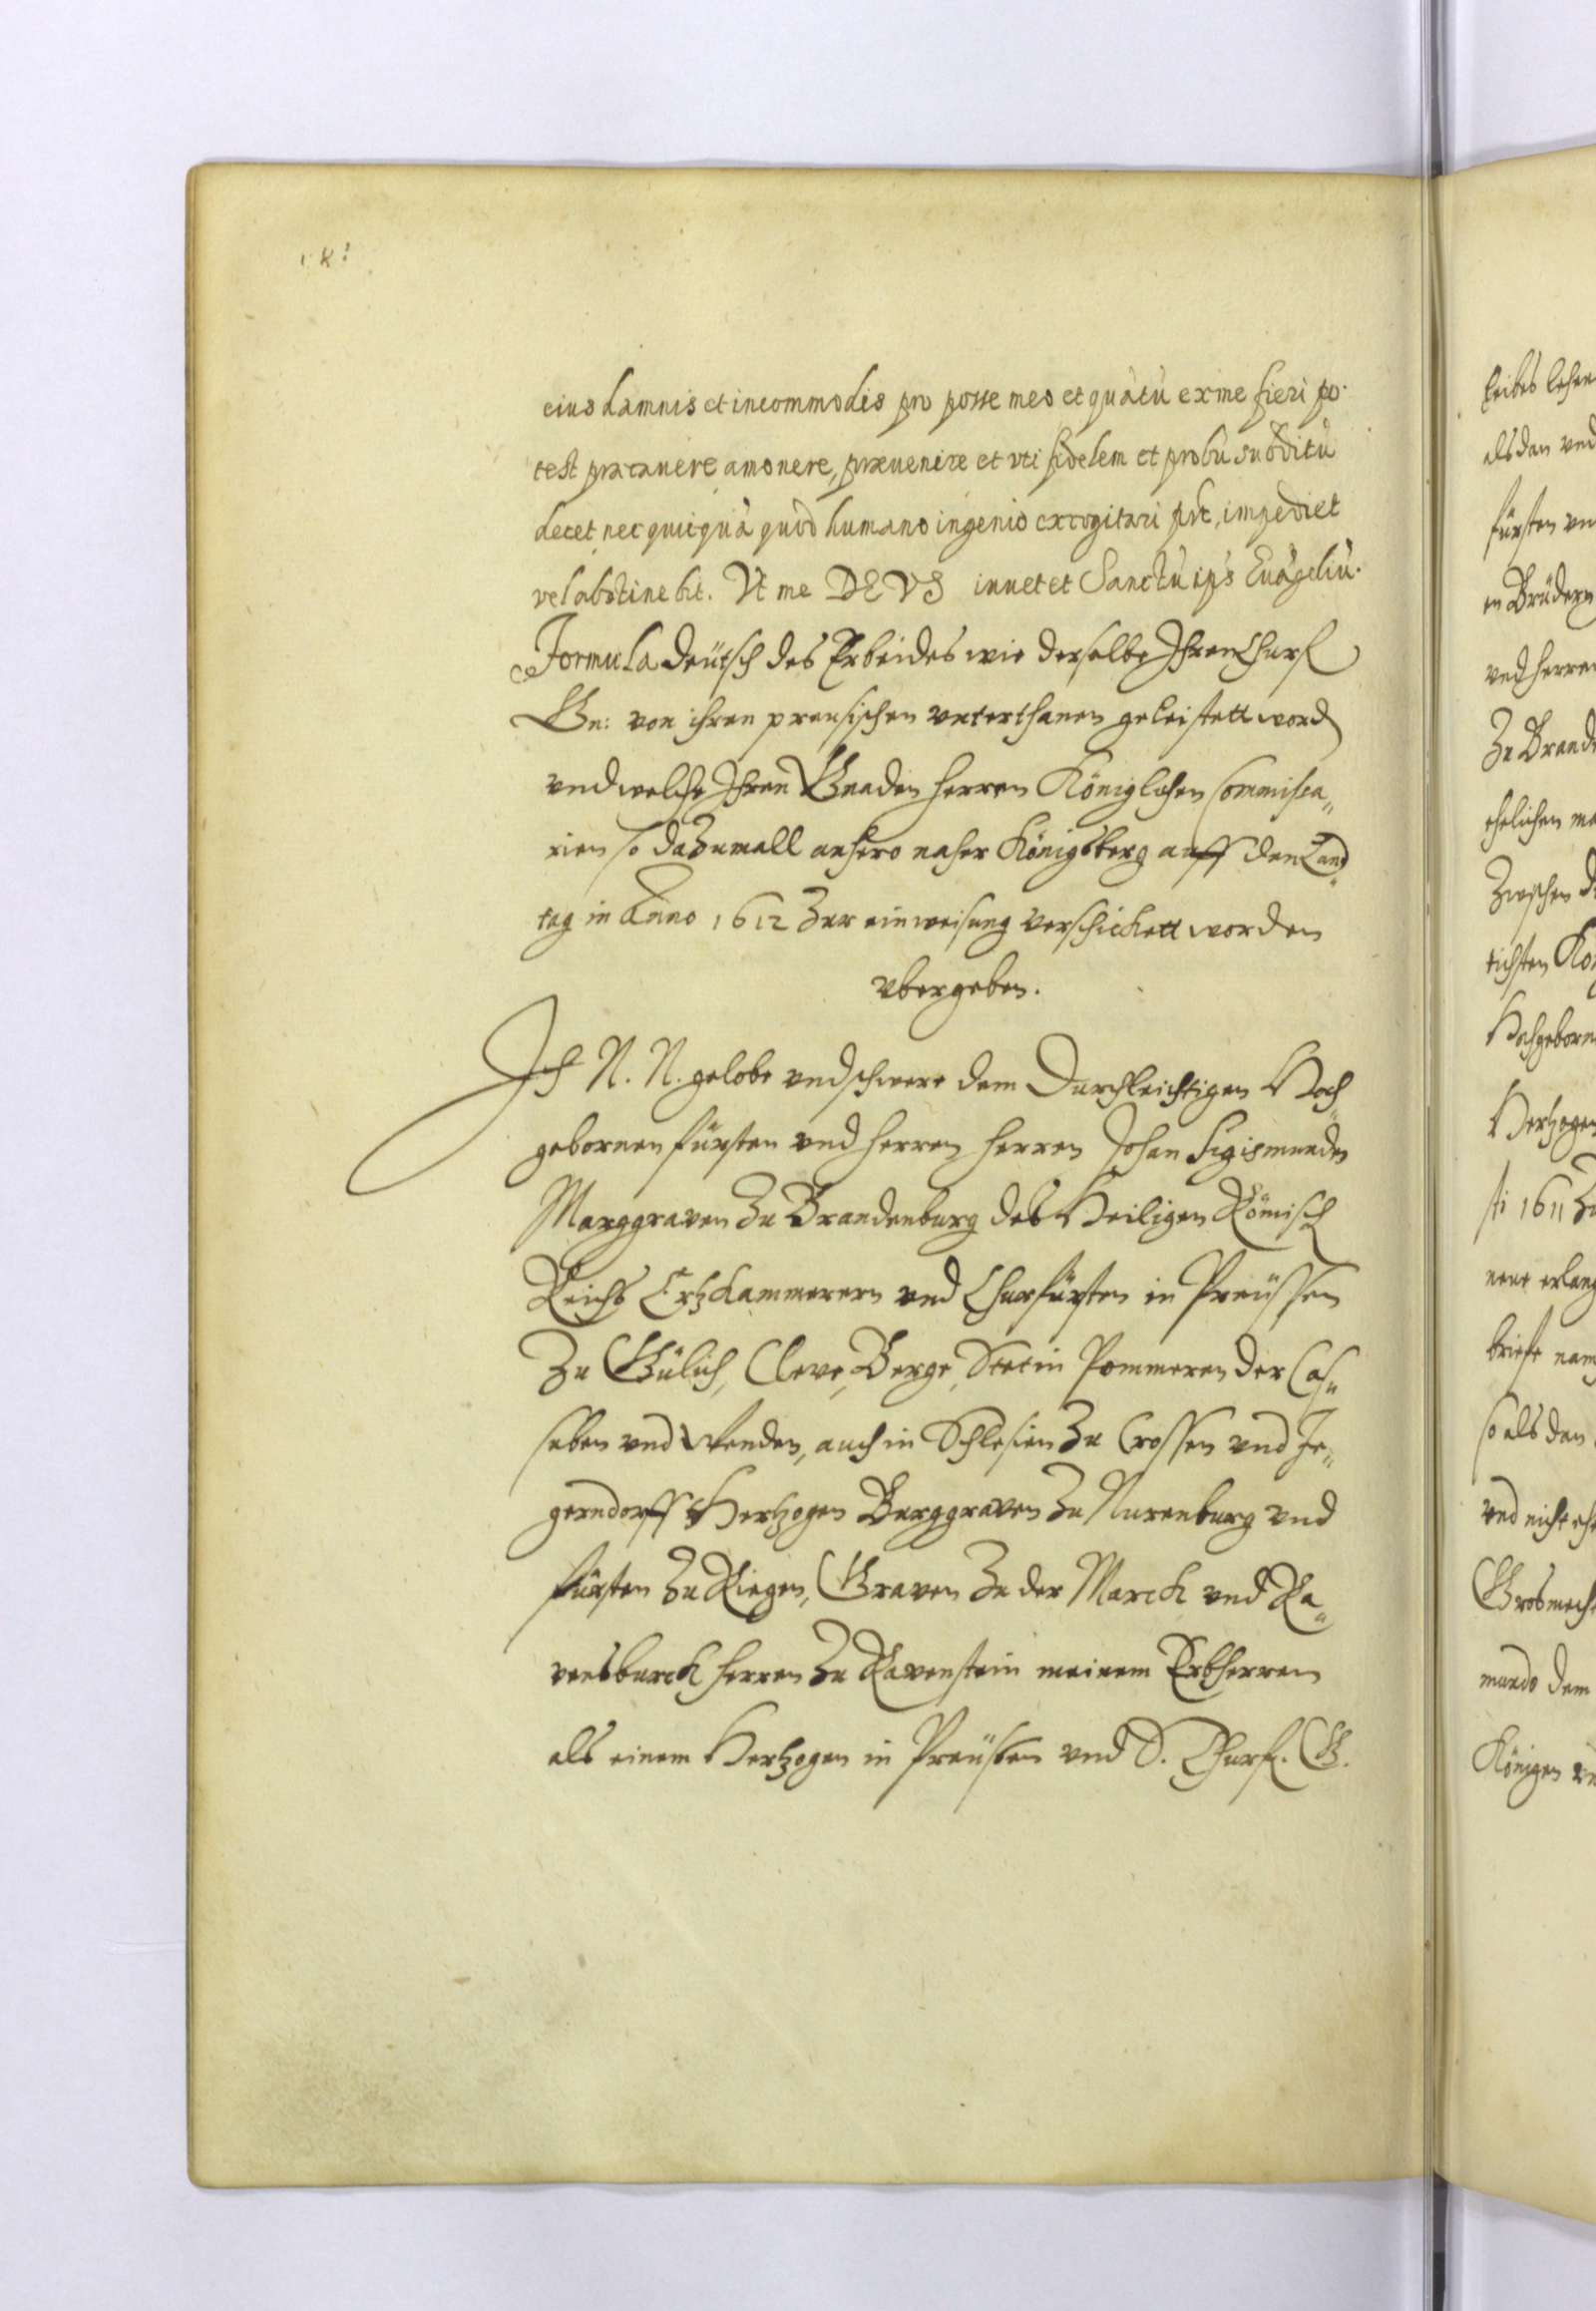 eius damnis et incommodis pro posse meo et quātū ex me fieri po-
test præcauere amonere, præuenire et vti fidelem et probū subditū
decet, nec quicquā quod humano ingenio excogitari pōt, impediet
vel abstinebit. Vt me DEVS iuuet et Sanctū ips Euāgeliū.
Formula deütsch des Erbeides wie derselbe Ihren Churf
Gn: von ihren preusischen vnterthanen geleistett word
vnd welche Ihren Gnaden herren Königlichen Commissa„
rien so dazumall anhero naher Königsberg auff den Land„
tag in Anno 1612 zur einweisung verschickett worden
vbergeben.
Ich N. N. gelobe vnd schwere dem Durchleichtigen Hoch„
gebornen fürsten vnd herren herren Johan Sigismunden
Marggraven zu Brandenburg des Heiligen Römisch
Reichs Ertzkammerern vnd Churfürsten in Preüssen
zu Gülich, Cleve, Berge, Stetin Pommeren der Cas„
suben vnd Wenden, auch in Schlesien zu Crossen vnd Je„
gerndorff Hertzogen Burggraven zu Nurenburg vnd
fürsten zu Riegen, Graven zu der Marck vnd Ra„
vensburck herren zu Ravenstein meinem Erbherren
als einem Hertzogen in Preüssen vnd S. Churf. G.
leibes lehen
alsdan vnd
fürsten
en Brüdern
vnd herren
zu Brand
ehelichen
zwischen
tichsten
Hochgeborn
Hertzogen
sti 1611 zu
neue erlang
briefe
so als dan
vnd nicht
Grosmech
mundo dem
Königen